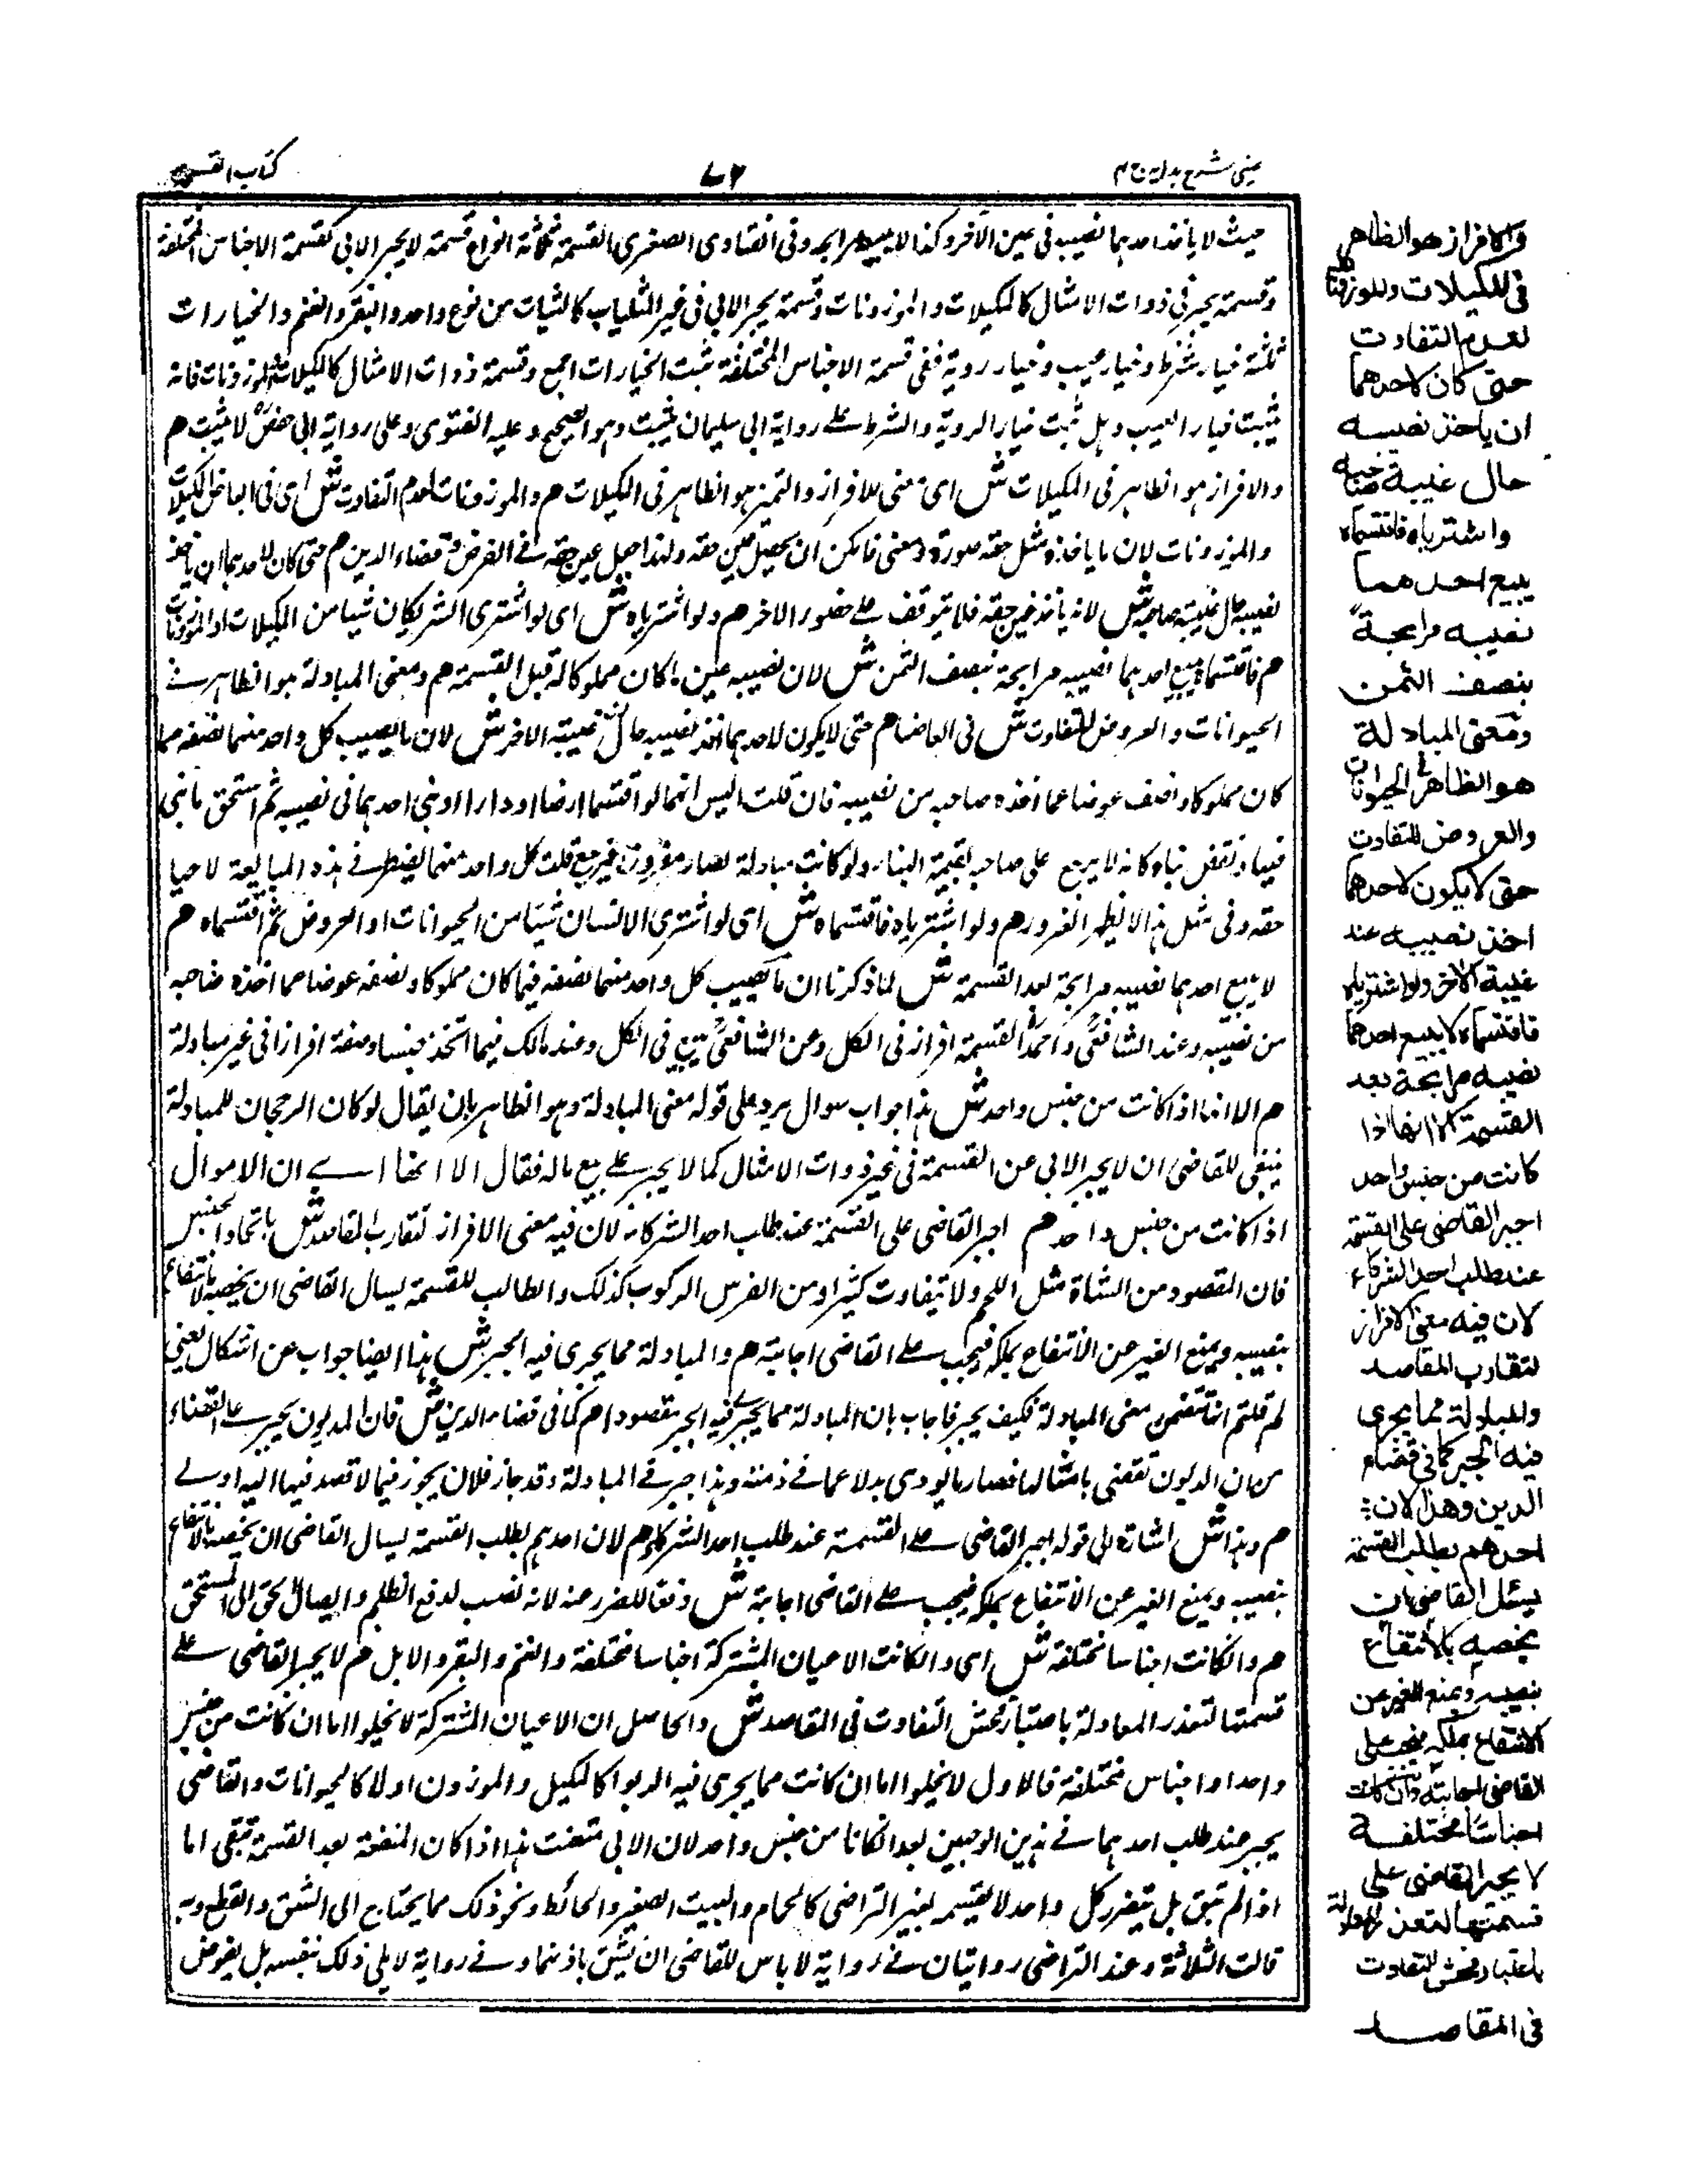 عینی شرح ہدایہ ج ۴
۷۲
کتاب القسمة
حيث لا ياخذ احدهما نصيبه فى عين الآخر وكذا لا يبيعه مرابحة وفى الفتاوى الصغرى القسمة ثلاثة انواع قسمة لا يجبر الآبى كقسمة الاجناس المختلفة
وقسمة يجبر فى ذوات الامثال كالمكيلات والموزونات وقسمة يجبر الآبى فى غير المثليات كالثياب من نوع واحد والبقر والغنم والخيارات
ثلثة خيار شرط وخيار عيب وخيار روية ففى قسمة الاجناس المختلفة تثبت الخيارات اجمع وقسمة ذوات الامثال كالمكيلات والموزونات فانه
يثبت خيار العيب وهل يثبت خيار الروية والشرط على رواية ابى سليمان يثبت وهو الصحيح وعليه الفتوى وعلى رواية ابى حفص لا يثبت م
والافراز هو الظاهر فى المكيلات ش اى معنى الافراز والتميز هو الظاهر فى المكيلات م والموزونات لعدم التفاوت ش اى فى ابعاض المكيلات
والموزونات لان ما ياخذه مثل حقه صورة ومعنى فامكن ان يجعل عين حقه ولهذا جعل عين حقه فى القرض وقضاء الدين م حتى كان لاحدهما ان ياخذ
نصيبه حال غيبة صاحبه ش لانه ياخذ عين حقه فلا يتوقف على حضور الاخر م ولو اشترياه ش اى لو اشترى الشريكان شيا من المكيلات او الموزونات
م فاقتسماه يبيع احدهما نصيبه مرابحة بنصف الثمن ش لان نصيبه عين ما كان مملوكا له قبل القسمة م ومعنى المبادلة هو الظاهر فى
الحيوانات والعروض للتفاوت ش فى ابعاضها م حتى لا يكون لاحدهما اخذ نصيبه حال غيبة الاخر ش لان ما يصيب كل واحد منهما نصفه مما
كان مملوكا ونصف عوضا عما اخذه صاحبه من نصيبه فان قلت اليس انهما لو اقتسما ارضا او دارا او بنى احدهما فى نصيبه ثم استحق ما بنى
فيها ونقض بناه كانه لا يرجع على صاحبه بقيمة البناء ولو كانت مبادلة لصار مغرورا فيرجع قلت كل واحد منهما يضطر فى هذه المبايعة لاحيا
حقه وفى مثل هذا لا يظهر الغرور م ولو اشترياه فاقتسماه ش اى لو اشترى الانسان شيئا من الحيوانات او العروض ثم اقتسماه م
لا يبيع احدهما نصيبه مرابحة بعد القسمة ش لما ذكرنا ان ما يصيب كل واحد منهما نصفه فيما كان مملوكا ونصفه عوضا عما اخذه صاحبه
من نصيبه وعند الشافعى واحمد القسمة افراز فى الكل وعن الشافعى بيع فى الكل وعند مالك فيما اتخذ جنسا وصفة افراز فى غير مبادلة
م الا انها اذا كانت من جنس واحد ش هذا جواب سوال يرد على قوله معنى المبادلة وهو الظاهر بان يقال لو كان الرجحان للمبادلة
ينبغى للقاضى ان لا يجبر الآبى عن القسمة فى غير ذوات الامثال كما لا يجبر على بيع ماله فقال الا انها اى ان الاموال
اذا كانت من جنس واحد م اجبر القاضى على القسمة عند طلب احد الشركاء لان فيه معنى الافراز لتقارب المقاصد ش باتحاد الجنس
فان المقصود من الشاة مثل اللحم ولا يتفاوت كثيرا ومن الفرس الركوب كذلك والطالب للقسمة يسال القاضى ان يخصه بالانتفاع
بنصيبه ويمنع الغير عن الانتفاع بملكه فيجب على القاضى اجابته م والمبادلة مما يجرى فيه الجبر ش هذا ايضا جواب عن اشكال يعنى
لم قلتم انها تتضمن معنى المبادلة فكيف يجبر فاجاب بان المبادلة مما يجبر فيه الجبر مقصودا م كما فى قضاء الدين ش فان المديون يجبر على القضاء
من ان الديون تقضى بامثالها فصار ما يودى بدلا عما فى ذمته وهذا جبر فى المبادلة وقد جاز فلان يجوز فيما لا قصد فيها اليه اولى
م وهذا ش اشارة الى قوله اجبر القاضى على القسمة عند طلب احد الشركاء م لان احدهم بطلب القسمة يسال القاضى ان يخصه بالانتفاع
بنصيبه ويمنع الغير عن الانتفاع بملكه فيجب على القاضى اجابة ش دفعا للضرر عنه لانه نصب لدفع الظلم وايصال الحق الى المستحق
م وان كانت اجناسا مختلفة ش اى وان كانت الاعيان المشتركة اجناسا مختلفة والغنم والبقر والابل م لا يجبر القاضى على
قسمتها لتعذر المعادلة باعتبار فحش التفاوت فى المقاصد ش والحاصل ان الاعيان المشتركة لا يخلوا اما ان كانت من جنس
واحد او اجناس مختلفة فالاول لا يخلوا اما ان كانت مما يجرى فيه الربوا كالمكيل والموزون اولا كالحيوانات والقاضى
يجبر عند طلب احدهما فى هذين الوجهين بعد ان كانا من جنس واحد لان الآبى متعنت هذا اذا كان المنفعة بعد القسمة تبقى اما
اذا لم تبق بل يتضرر كل واحد لا يقسمه بغير التراضى كالحمام والبيت الصغير والحائط ونحو ذلك مما يحتاج الى الشق والقطع وبه
قالت الثلاثة وعند التراضى روايتان فى رواية لا باس للقاضى ان يشق باذنهما وفى رواية لا يلى ذلك بنفسه بل يفوض
والافراز هو الظاهر
فى المكيلات والموزونات
لعدم التفاوت
حتى كان لاحدهما
ان ياخذ نصيبه
حال غيبة صاحبه
واشترياه فاقتسماه
يبيع احدهما
نصيبه مرابحةً
بنصف الثمن
ومعنى المبادلة
هو الظاهر فى الحيوانات
والعروض للتفاوت
حتى لا يكون لاحدهما
اخذ نصيبه عند
غيبة الآخر ولو اشترياه
فاقتسماه لا يبيع احدهما
نصيبه مرابحة بعد
القسمة الا انها اذا
كانت من جنس واحد
اجبر القاضى على القسمة
عند طلب احد الشركاء
لان فيه معنى الافراز
لتقارب المقاصد
والمبادلة مما يجرى
فيه الجبر كما فى قضاء
الدين وهذا لان
احدهم بطلب القسمة
يسئل القاضى ان
يخصه بالانتفاع
بنصيبه ويمنع الغير عن
الانتفاع بملكه فيجب على
القاضى اجابته وان كانت
اجناسًا مختلفة
لا يجبر القاضى على
قسمتها لتعذر المعادلة
باعتبار فحش التفاوت
فى المقاصد